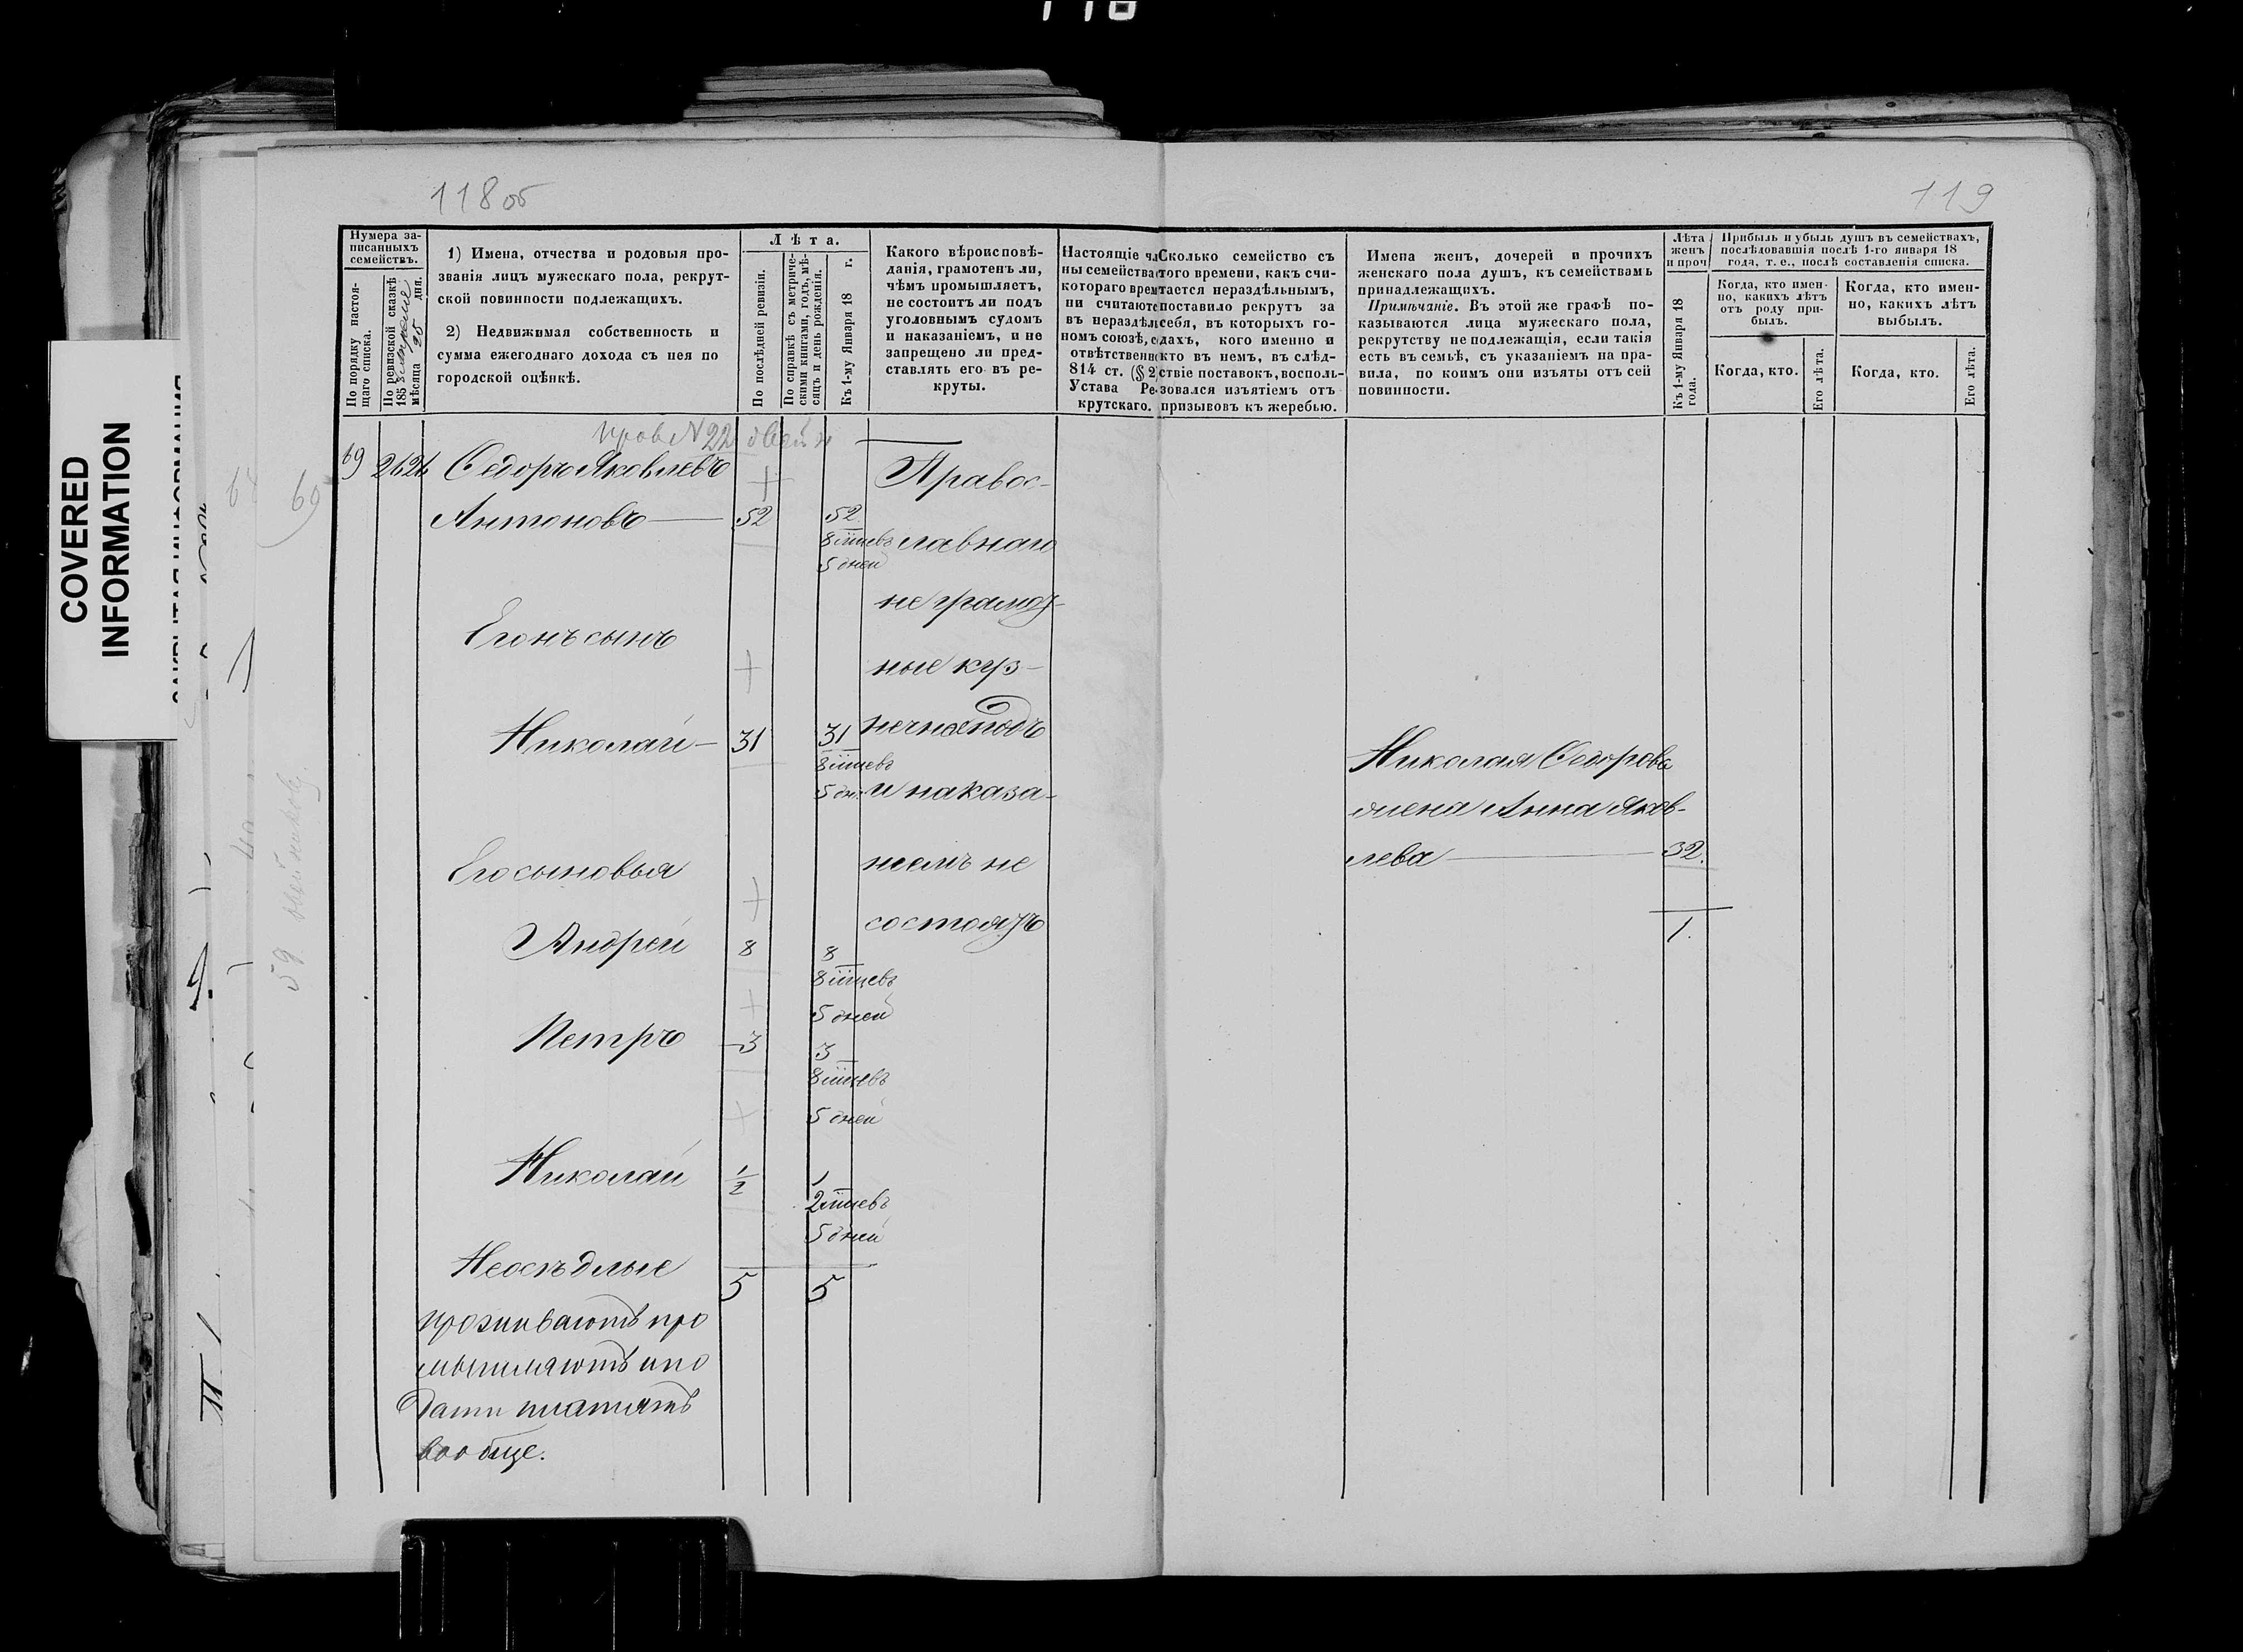 118об
119
COVERED
INFORMATION
Нумера за-
писанныхъ
семействъ.
По порядку настоя-
щаго списка.
По ревизской сказкѣ
185
мѣсяца 25 дня.
1) Имена, отчества и родовыя про-
званія лицъ мужескаго пола, рекрут-
ской повинности подлежащихъ.
2) Недвижимая собственность и
сумма ежегоднаго дохода съ нея по
городской оцѣнкѣ.
Лѣта.
По послѣдней ревизіи.
По справкѣ съ метриче-
скими книгами, годъ, мѣ-
сяцъ и день рожденія.
Къ 1-му Января 18 г.
Какого вѣроисповѣ-
данія, грамотенъ ли,
чѣмъ промышляетъ,
не состоитъ ли подъ
уголовнымъ судомъ
и наказаніемъ, и не
запрещено ли пред-
ставлять его въ ре-
круты.
Настоящіе чл
ны семейства
котораго врем
ни считаютс
въ нераздѣл
номъ союзѣ, с
отвѣтственн
814 ст. (§ 2
Устава Ре-
крутскаго.
Сколько семейство съ
того времени, какъ счи-
тается нераздѣльнымъ,
поставило рекрутъ за
себя, въ которыхъ го-
дахъ, кого именно и
кто въ немъ, въ слѣд-
ствіе поставокъ, восполь-
зовался изъятіемъ отъ
призывовъ къ жеребью.
Имена женъ, дочерей и прочихъ
женскаго пола душъ, къ семействамъ
принадлежащихъ.
Примѣчаніе. Въ этой же графѣ по-
казываются лица мужескаго пола,
рекрутству не подлежащія, если такія
есть въ семьѣ, съ указаніемъ на пра-
вила, по коимъ они изъяты отъ сей
повинности.
Лѣта
женъ
и проч
Къ 1-му Января 18
года.
Прибыль и убыль душъ въ семействахъ,
послѣдовавшія послѣ 1-го января 18
года, т. е., послѣ составленія списка.
Когда, кто имен-
но, какихъ лѣтъ
отъ роду при-
былъ.
Когда, кто имен-
но, какихъ лѣтъ
выбылъ.
Когда, кто.
Его лѣта.
Когда, кто.
Его лѣта.
69 2626 Ѳедоръ Яковлевъ
Антоновъ — 52 52
8 мцевъ
5 дней
Егонъ сынъ
Николай — 31 31
8 мцевъ
5 дн:
Его сыновья
Андрей 8 8
8 мцевъ
5 дней
Петръ 3 3
8 мцевъ
5 дней
Николай 1/2 1
2 мцевъ
5 дней
5 5
Неосѣдлые
проживаютъ про
мышляютъ и по
дати платятъ
вообще.
Правос-
лавнаго
не грамот-
ные куз-
нечна подъ
и наказа-
ніемъ не
состоятъ
Николая Ѳедорова
жена Анна Яков-
лева — 32.
1.